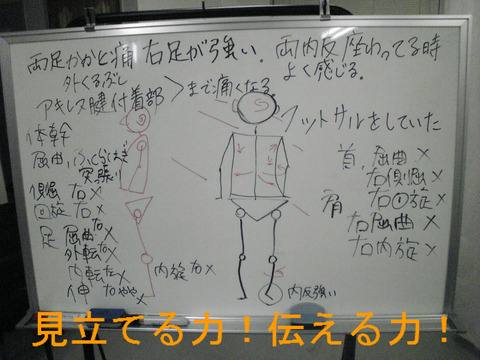 両足かかと痛 右足が強い. 両内反 座わってる時
よく感じる.
外くるぶし
アキレス腱付着部 > まで痛くなる.
フットサルをしていた
体幹
屈曲,ふくらはぎ
突張り
側屈 右×
回旋 右×
足 屈曲右×
外転右×
内転右×
伸 右やや×
内旋右×
内反強い
首,屈曲×
右側屈×
右回旋×
肩 右屈曲×
右内旋×
見立てる力！伝える力！